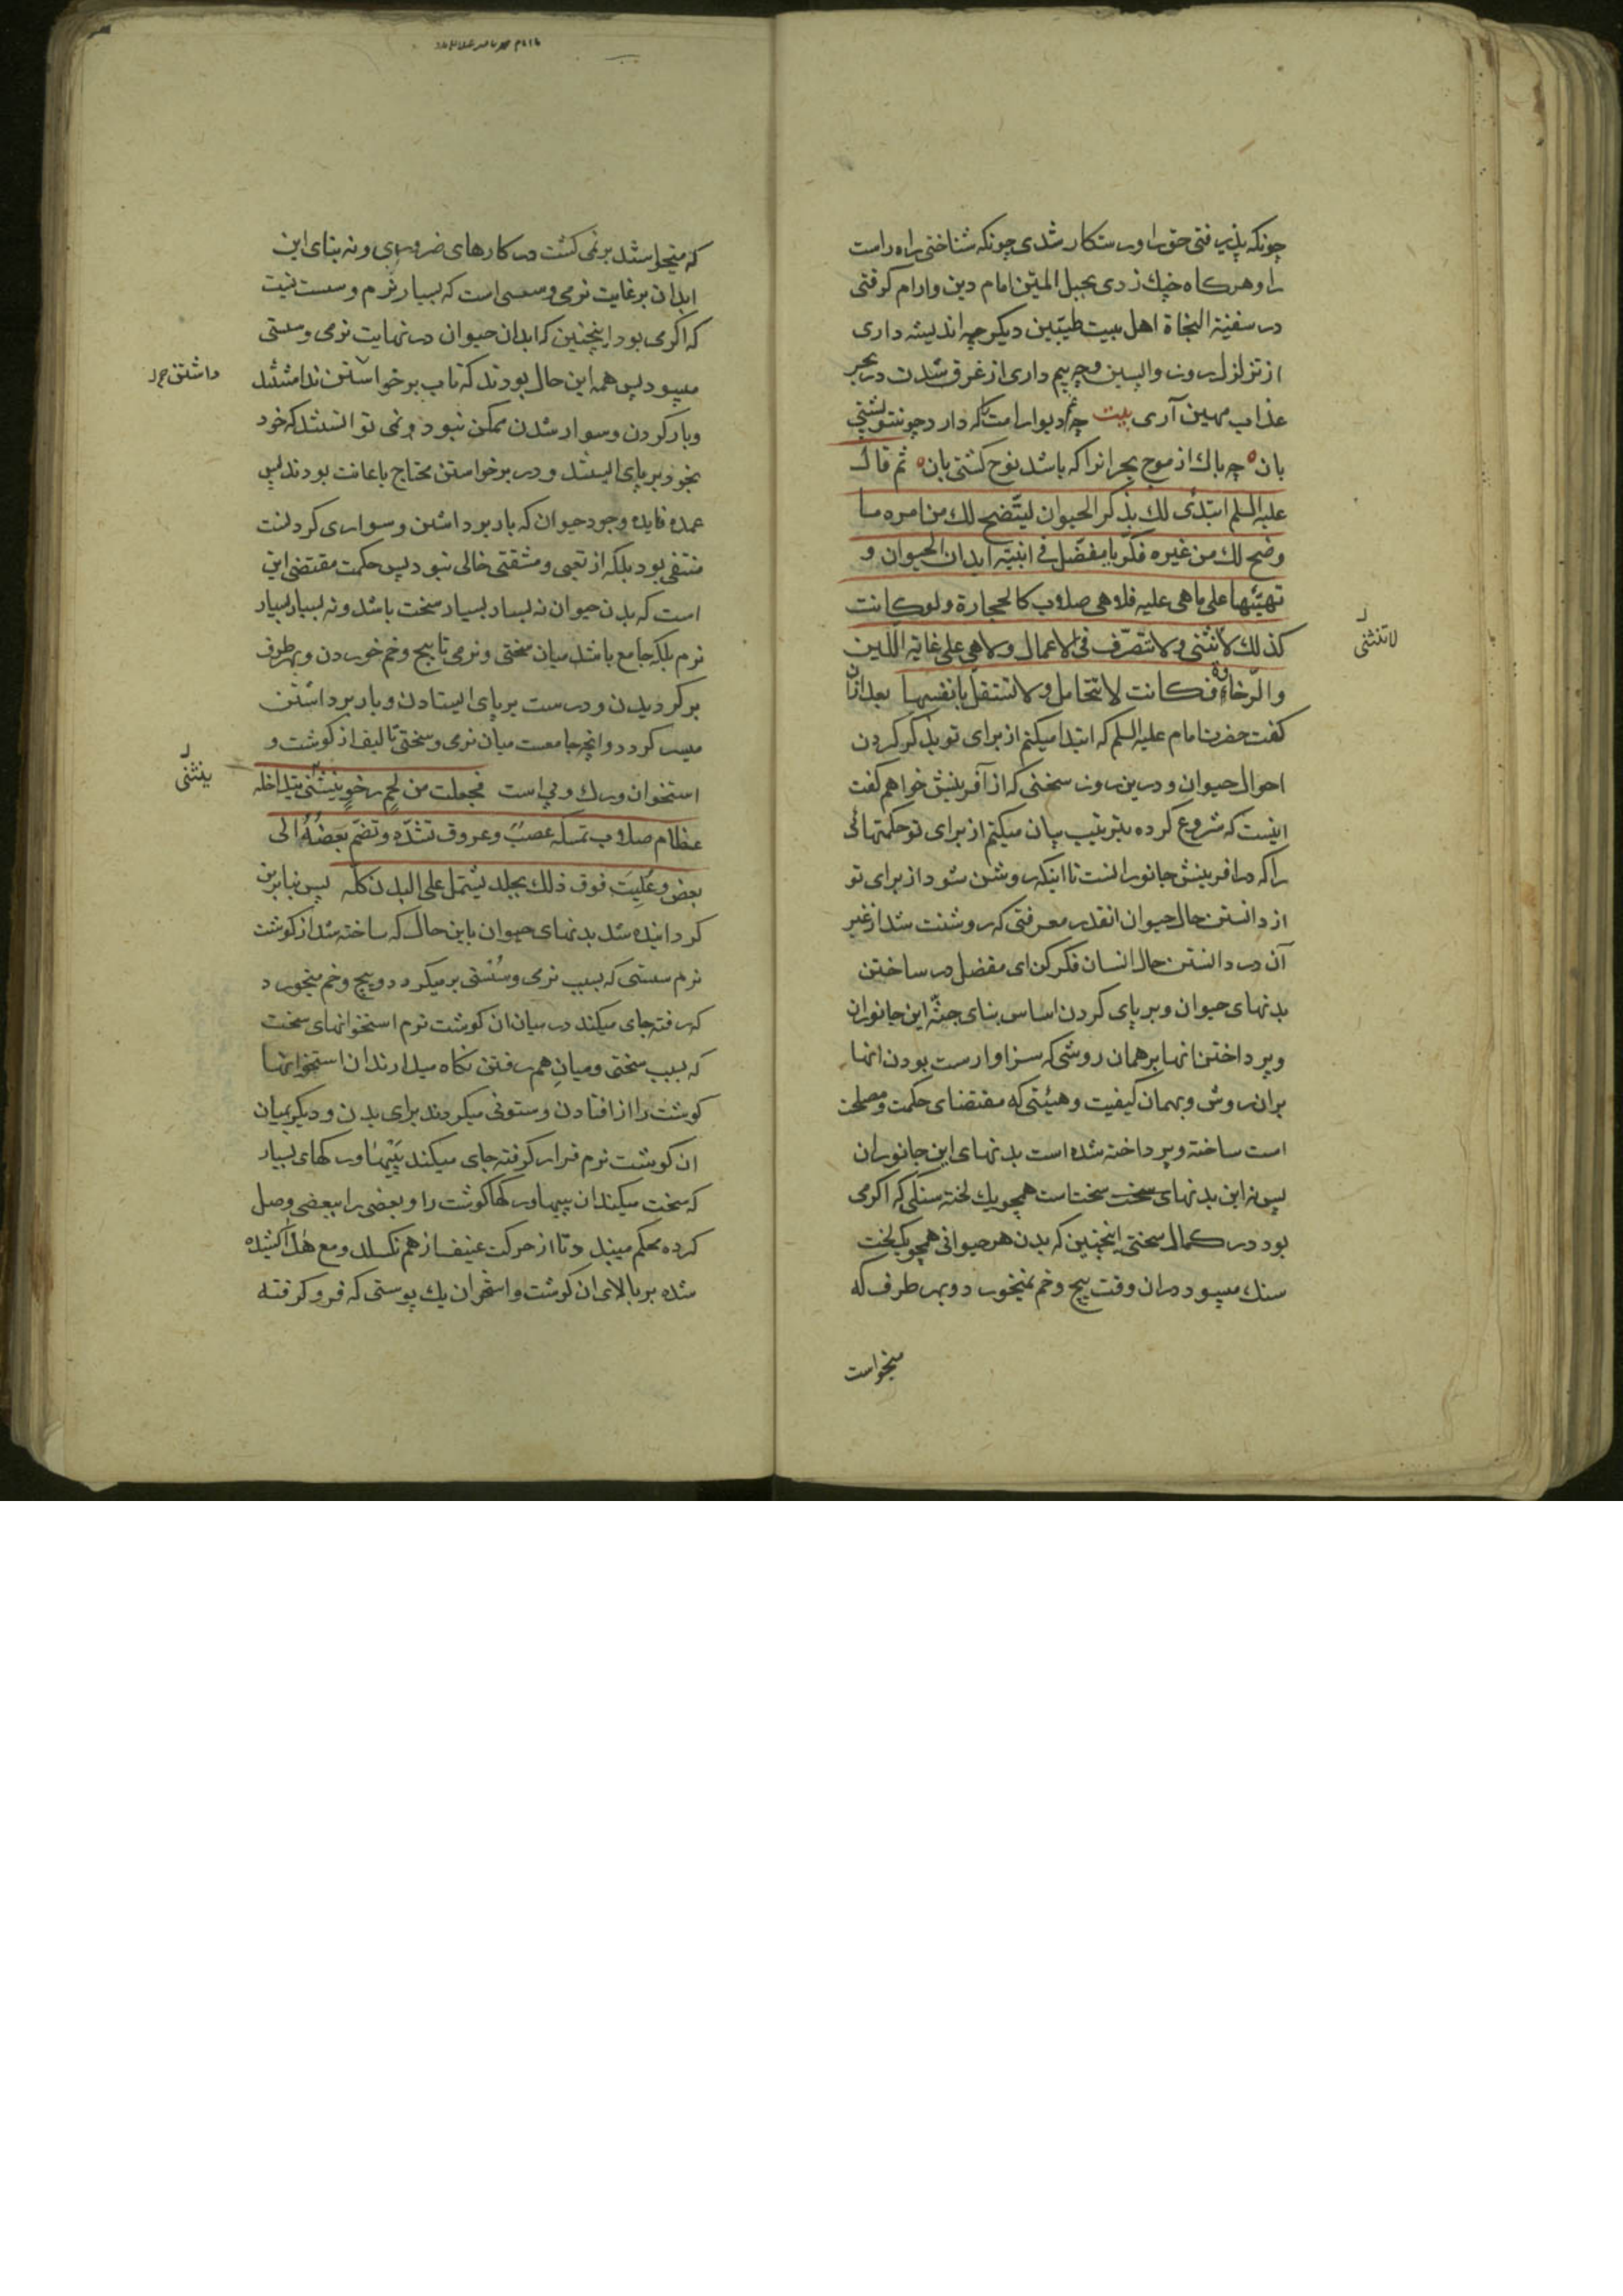 چونکه پذیرفتی حق را و رستکار شدی چونکه شناختی راه راست
را و هرکاه چنك زدی بحبل المتین امام دین و ارام کرفتی
در سفینة النجاة اهل بیت طیّبین دیکر چه اندیشه داری
از تزلزل روز واپسین و چه بیم داری از غرق شدن در بحر
عذاب مهین آری بیت چه غم دیوار امت را که دارد چون تو پشتی
بان ° چه باك از موج بحر انرا که باشد نوح کشتی بان ° ثم قال
علیه السلم ابتدئ لك بذکر الحیوان لیتّضح لك من امره ما
وضح لك من غیره فکّر یا مفضّل فی ابنیة ابدان الحیوان و
تهیّئها علی ما هی علیه فلا هی صلاب کالحجارة و لو کانت
کذلك لا تنثنی و لا تتصرّف فی الاعمال و لا هی علی غایة اللّین
لا تنثنی
و الرّخاوة فکانت لا تتحامل و لا تستقلّ بانفسها بعد ازان
کفت حضرت امام علیه السلم که ابتدا میکنم از برای تو بذکر کردن
احوال حیوان و درین روز سخنی که از آفرینش خواهم کفت
اینست که شروع کرده بترتیب بیان میکنم از برای تو حکمتهائی
را که در افرینش جانورانست تا اینکه روشن شود از برای تو
از دانستن حال حیوان انقدر معرفتی که روشنت شد از غیر
آن در دانستن حال انسان فکر کن ای مفضل در ساختن
بدنهای حیوان و برپای کردن اساس بنای جثّه این جانوران
و پرداختن انها بر همان روشی که سزاوارست بودن انها
بران روش و بهمان کیفیت و هیئتی که مقتضای حکمت و مصلحت
است ساخته و پرداخته شده است بدنهای این جانوران
پس نه این بدنهای سخت سختاست همچو یك لخته سنکی که اکر می
بود در کمال سختی اینچنین که بدن هر حیوانی همچو یك لخت
سنك میبود دران وقت پیچ و خم نمیخورد و بهر طرف که
میخواست
که میخواستند برنمی کشت در کارهای ضروری و نه بنای این
ابدان بر غایت نرمی و سستی است که بسیار نرم و سست نیست
که اکر می بود اینچنین که ابدان حیوان در نهایت نرمی و سستی
میبود پس همه این حال بودند که تاب برخواستن نداشتند
داشتن
و بار کردن و سوار شدن ممکن نبود و نمی توانستند که خود
بخود برپای ایستند و در برخواستن محتاج باعانت بودند پس
عمده فایده وجود حیوان که بار برداشتن و سواری کردنست
منتفی بود بلکه از تعبی و مشقتی خالی نبود پس حکمت مقتضی این
است که بدن حیوان نه بسیار بسیار سخت باشد و نه بسیار بسیار
نرم بلکه جامع باشد میان سختی و نرمی تا پیچ و خم خوردن و بهر طرف
برکردیدن و درست برپای ایستادن و بار برداشتن
میسر کردد و انچه جامعست میان نرمی و سختی تالیف از کوشت و
استخوان و رك و پی است فجعلت من لحم رخو ینثنی تتداخله
ینثنی
عظام صلاب تمسکه عصب و عروق تشدّه و تضمّ بعضه الی
بعض و علیت فوق ذلك بجلد یشتمل علی البدن کلّه پس بنابرین
کردانیده شد بدنهای حیوان باین حال که ساخته شد از کوشت
نرم سستی که بسبب نرمی و سُستی برمیکردد و پیچ و خم میخورد
که رفته جای میکند در میان ان کوشت نرم استخوانهای سخت
که بسبب سختی و میان هم رفتن نکاه میدارند ان استخوانها
کوشت را از افتادن و ستونی میکردند برای بدن و دیکر بمیان
ان کوشت نرم قرار کرفته جای میکند پیها و رکهای بسیار
که سخت میکند ان پیها و رکها کوشت را و بعضی را ببعضی وصل
کرده محکم میبندد تا از حرکت عنیف از هم نکسلد و مع هذا کشیده
شده بر بالای ان کوشت و استخوان یك پوستی که فرو کرفته